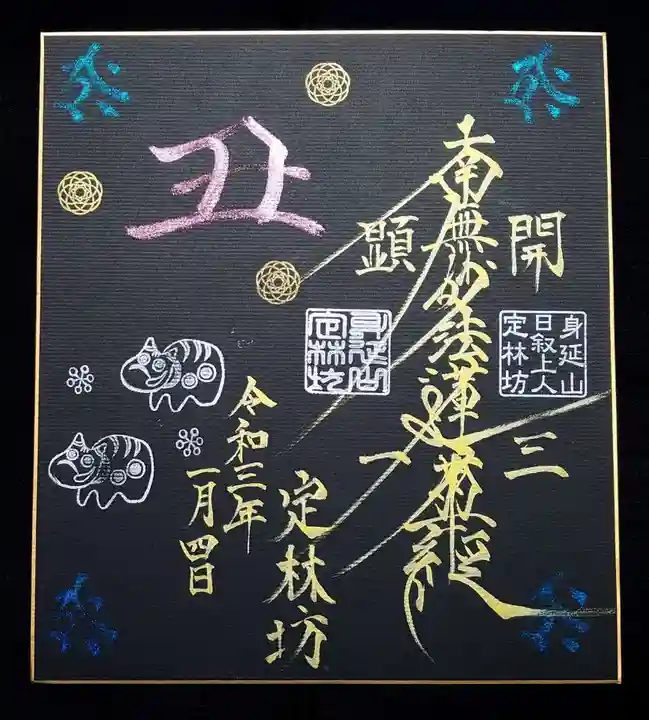 開
三
南無妙法蓮華経
顕
一
身延山
日叙上人
定林坊
身延山
定林坊
丑
定林坊
令和三年
一月四日